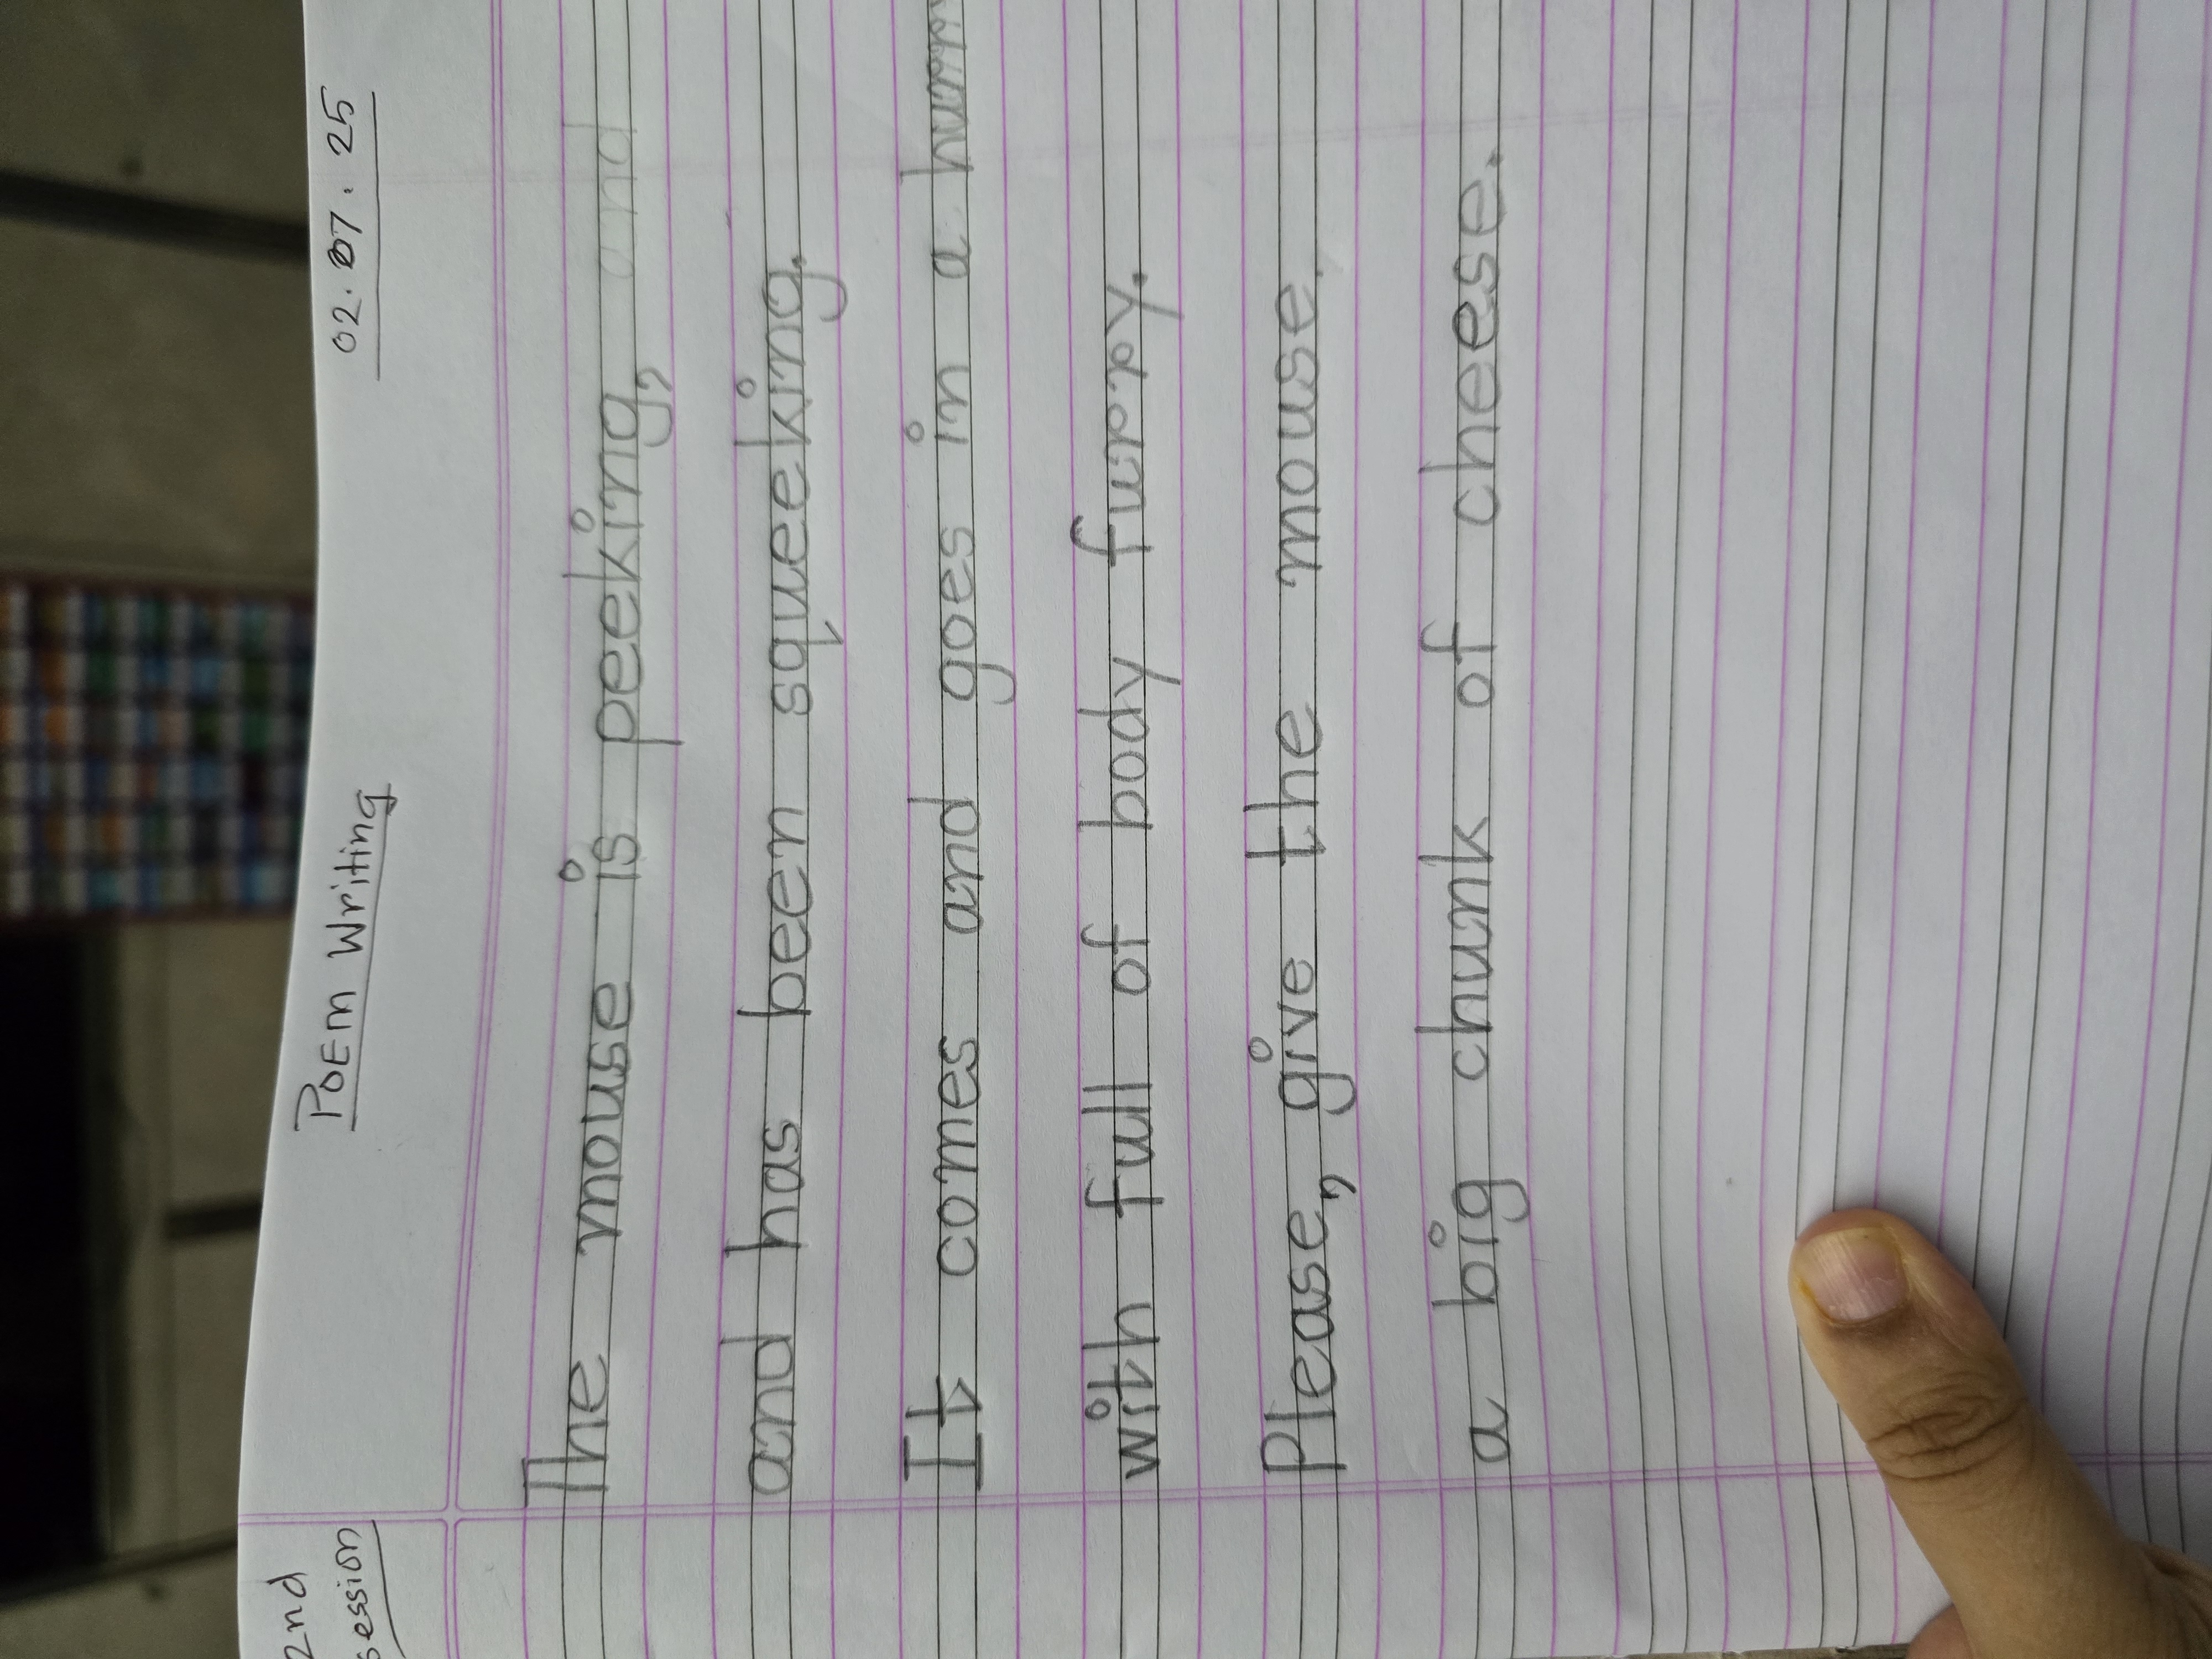 2nd
session
Poem Writing
02.07.25
The mouse is peeking, and
and has been squeeking.
It comes and goes in a
with full of body furry.
Please, give the mouse.
a big chunk of cheese.